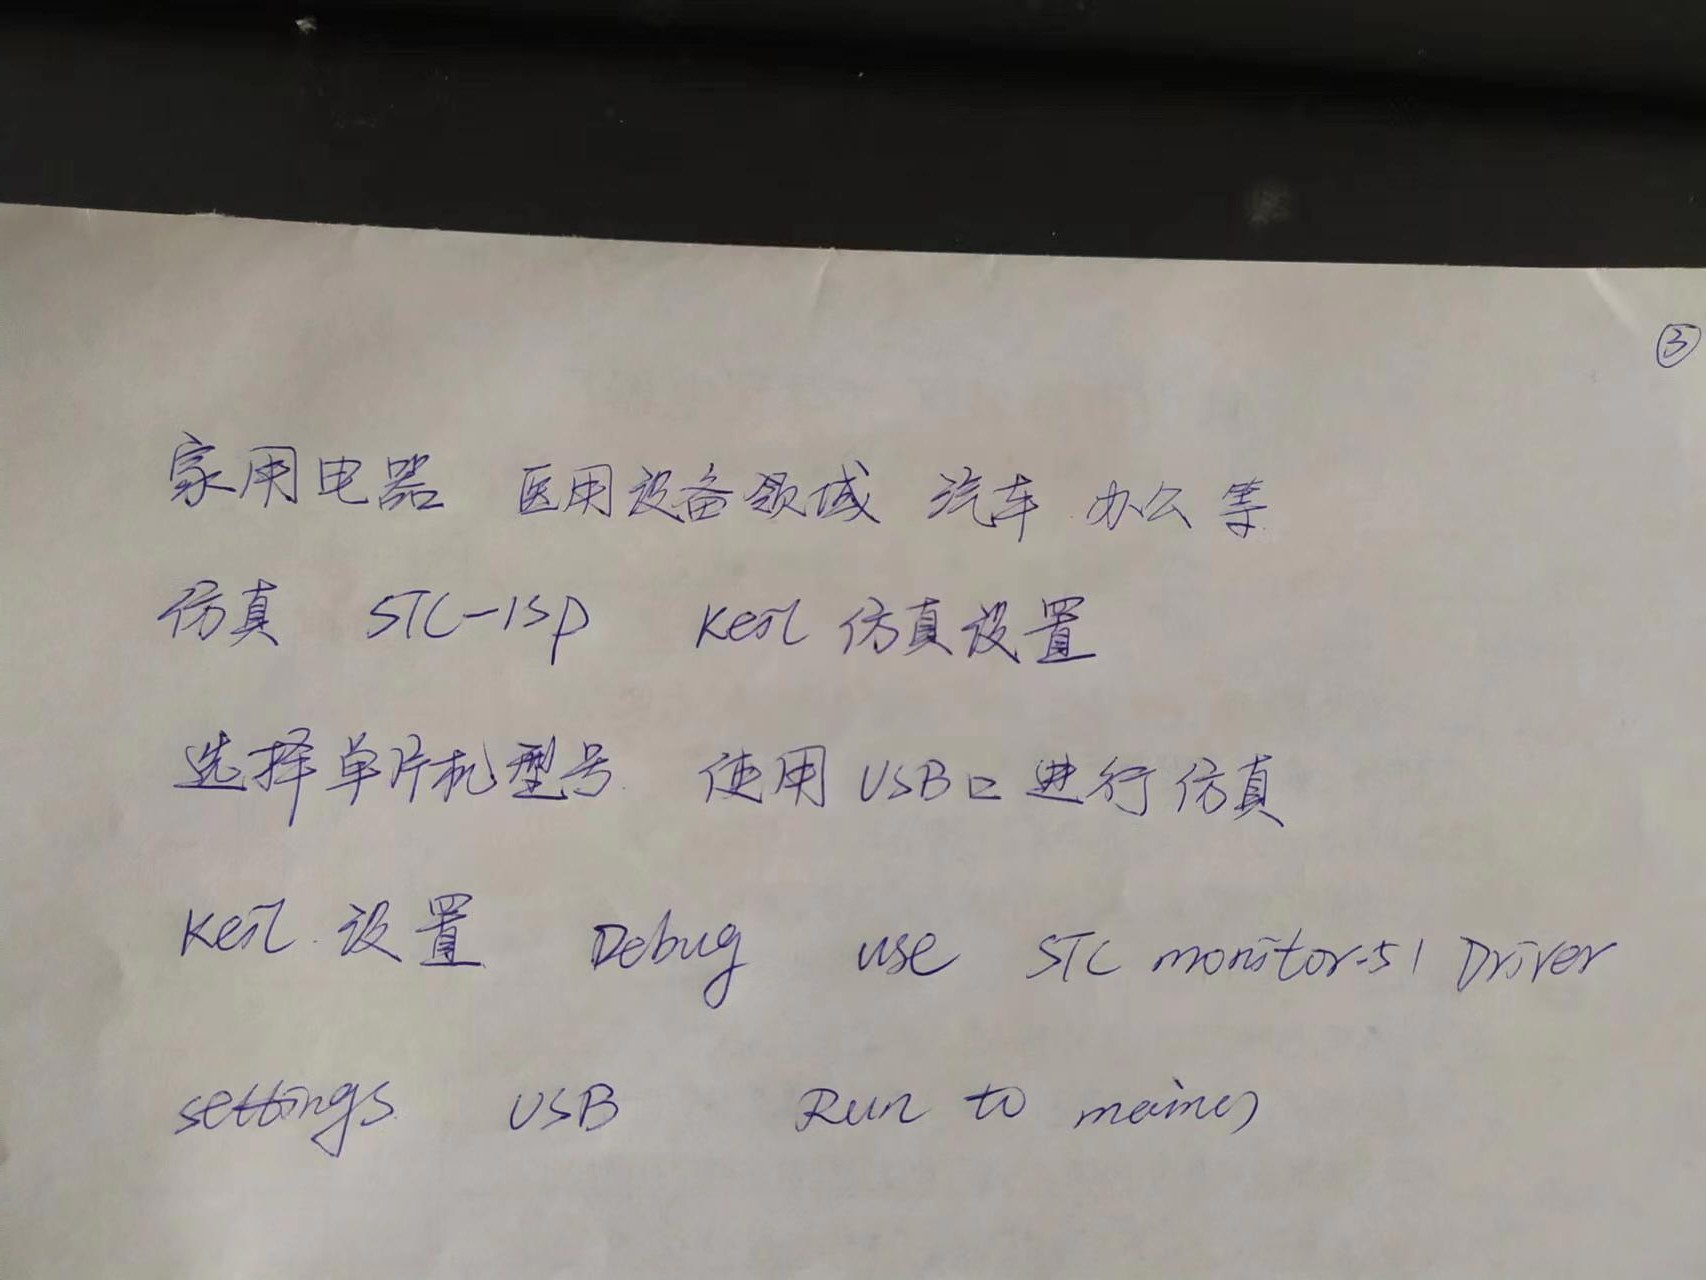 ③
家用电器 医用设备领域 汽车 办公等
仿真 STC-ISP Keil 仿真设置
选择单片机型号 使用USB口进行仿真
Keil 设置 Debug use STC monitor-51 Driver
settings USB Run to main()